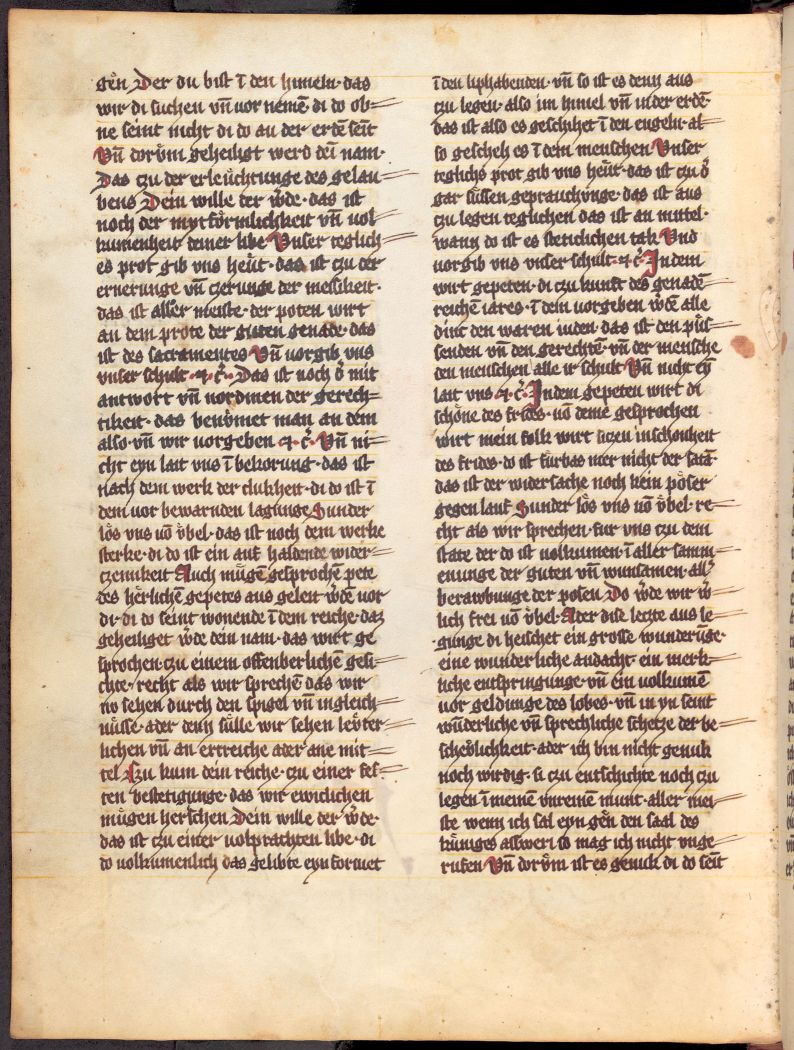 gen̄ Der du bist ī den himeln · das
wir di suchen vn̄ vor nemē di do ob=
ne seint nicht di do au der erdē seīt
Vn̄ dorv̄m geheiligt werd deī nam ·
Das czu der erleuͤchtunge des gelau=
bens Dein wille der w̄de · das ist
noch der mytfoͤrmlichkeit vn̄ vol=
kumenheit deiner libe Vnser teglich=
es prot gib vns heuͤt · das ist czu der
ernerunge vn̄ czerunge der messikeit ·
das ist aller meiste · der poten wirt
an dem prote der guten genade · das
ist des sacramentes Vn̄ vorgib vns
vnser schult · ⁊ c̄ · Das ist noch d̄ mit
antwort vn̄ nordinen der gerech=
tikeit · das benūmet man an dem
also · vn̄ wir vorgeben · ⁊ c̄ · Vn̄ ni=
cht eyn lait vns ī bekorung · das ist
nach dem werk der clukheit · di do ist ī
dem vor bewarnden lagunge Sunder
loͤs vns vō v̄bel · das ist noch dem werke
sterke · di do ist ein auf haldende wider=
czemikeit Auch muͤgē gesprochē pete
des herlichē gepetes aus geleit w̄dē vor
di · di do seint wonende ī dem reiche · daz
geheiliget w̄de dein nam · das wirt ge
sprochen · czu einem offenberlichē gesi=
chte · recht als wir sprechē das wir
nv sehen durch den spigel vn̄ ingleich=
nuͤsse · ader denn suͤlle wir sehen leuͤter=
lichen vn̄ an ertreiche ader ane mit=
tel Czu kum dein reiche · czu einer fes=
ten bestetigunge · das wir ewiclichen
muͤgen herschen Dein wille der w̄de ·
das ist czu einer volprachten libe · di
do volkumenlich das gelibte eyn formet
ī den liphabenden · vn̄ so ist es denn aus
czu legen · also im himel vn̄ in der erdē ·
das ist also es geschihet ī den engeln · al=
so gescheh es ī dem menschen Vnser
teglichs prot gib vns heuͤt · das ist czu d̄
gar suͤssen geprauchūnge · das ist aus
czu legen teglichen das ist an mittel ·
wann do ist es steticlichen tak Vnd
vorgib vns vnser schult · ⁊ c̄ · In dem
wirt gepeten · di czu kunft des genadē=
reichē iares · ī dem vorgeben w̄dē alle
dinc den waren iuden · das ist den puͤs=
senden vn̄ den gerechtē · vn̄ der mensche
den menschen alle ir schult Vn̄ nicht eȳ
lait vns · ⁊ c̄ · In dem gepeten wirt di
schoͤne des frides · vō deme gesprochen
wirt mein folk wirt siczen in schonheit
des frides · do ist furbas mer nicht der satā ·
das ist der wider sache noch kein poͤser
gegen lauf Sunder loͤs vns vō v̄bel · re=
cht als wir sprechen · fur vns czu dem
state der do ist volkumen · ī aller samm=
enunge der guten vn̄ wunsamen · all
berawbunge der posen Do w̄de wir w̄=
lich frei vō v̄bel · Ader dise leczte aus le=
gunge di heischet ein grosse wunderūge ·
eine wunderliche andacht · ein merk=
liche entspringunge · vn̄ ein volkumē
vor geldunge des lobes · vn̄ in yn seint
wūderliche vn̄ sprechliche schetze der be=
scheͤlichkeit · ader ich bin nicht genuk
noch wirdig · si czu entschichte noch czu
legen ī meinē vnreinē munt · aller mei=
ste wenn ich sal eyn gen̄ den saal des
kuͤniges assweri so mag ich nicht vnge=
rufen Vn̄ dorv̄m ist es genuck di do seīt